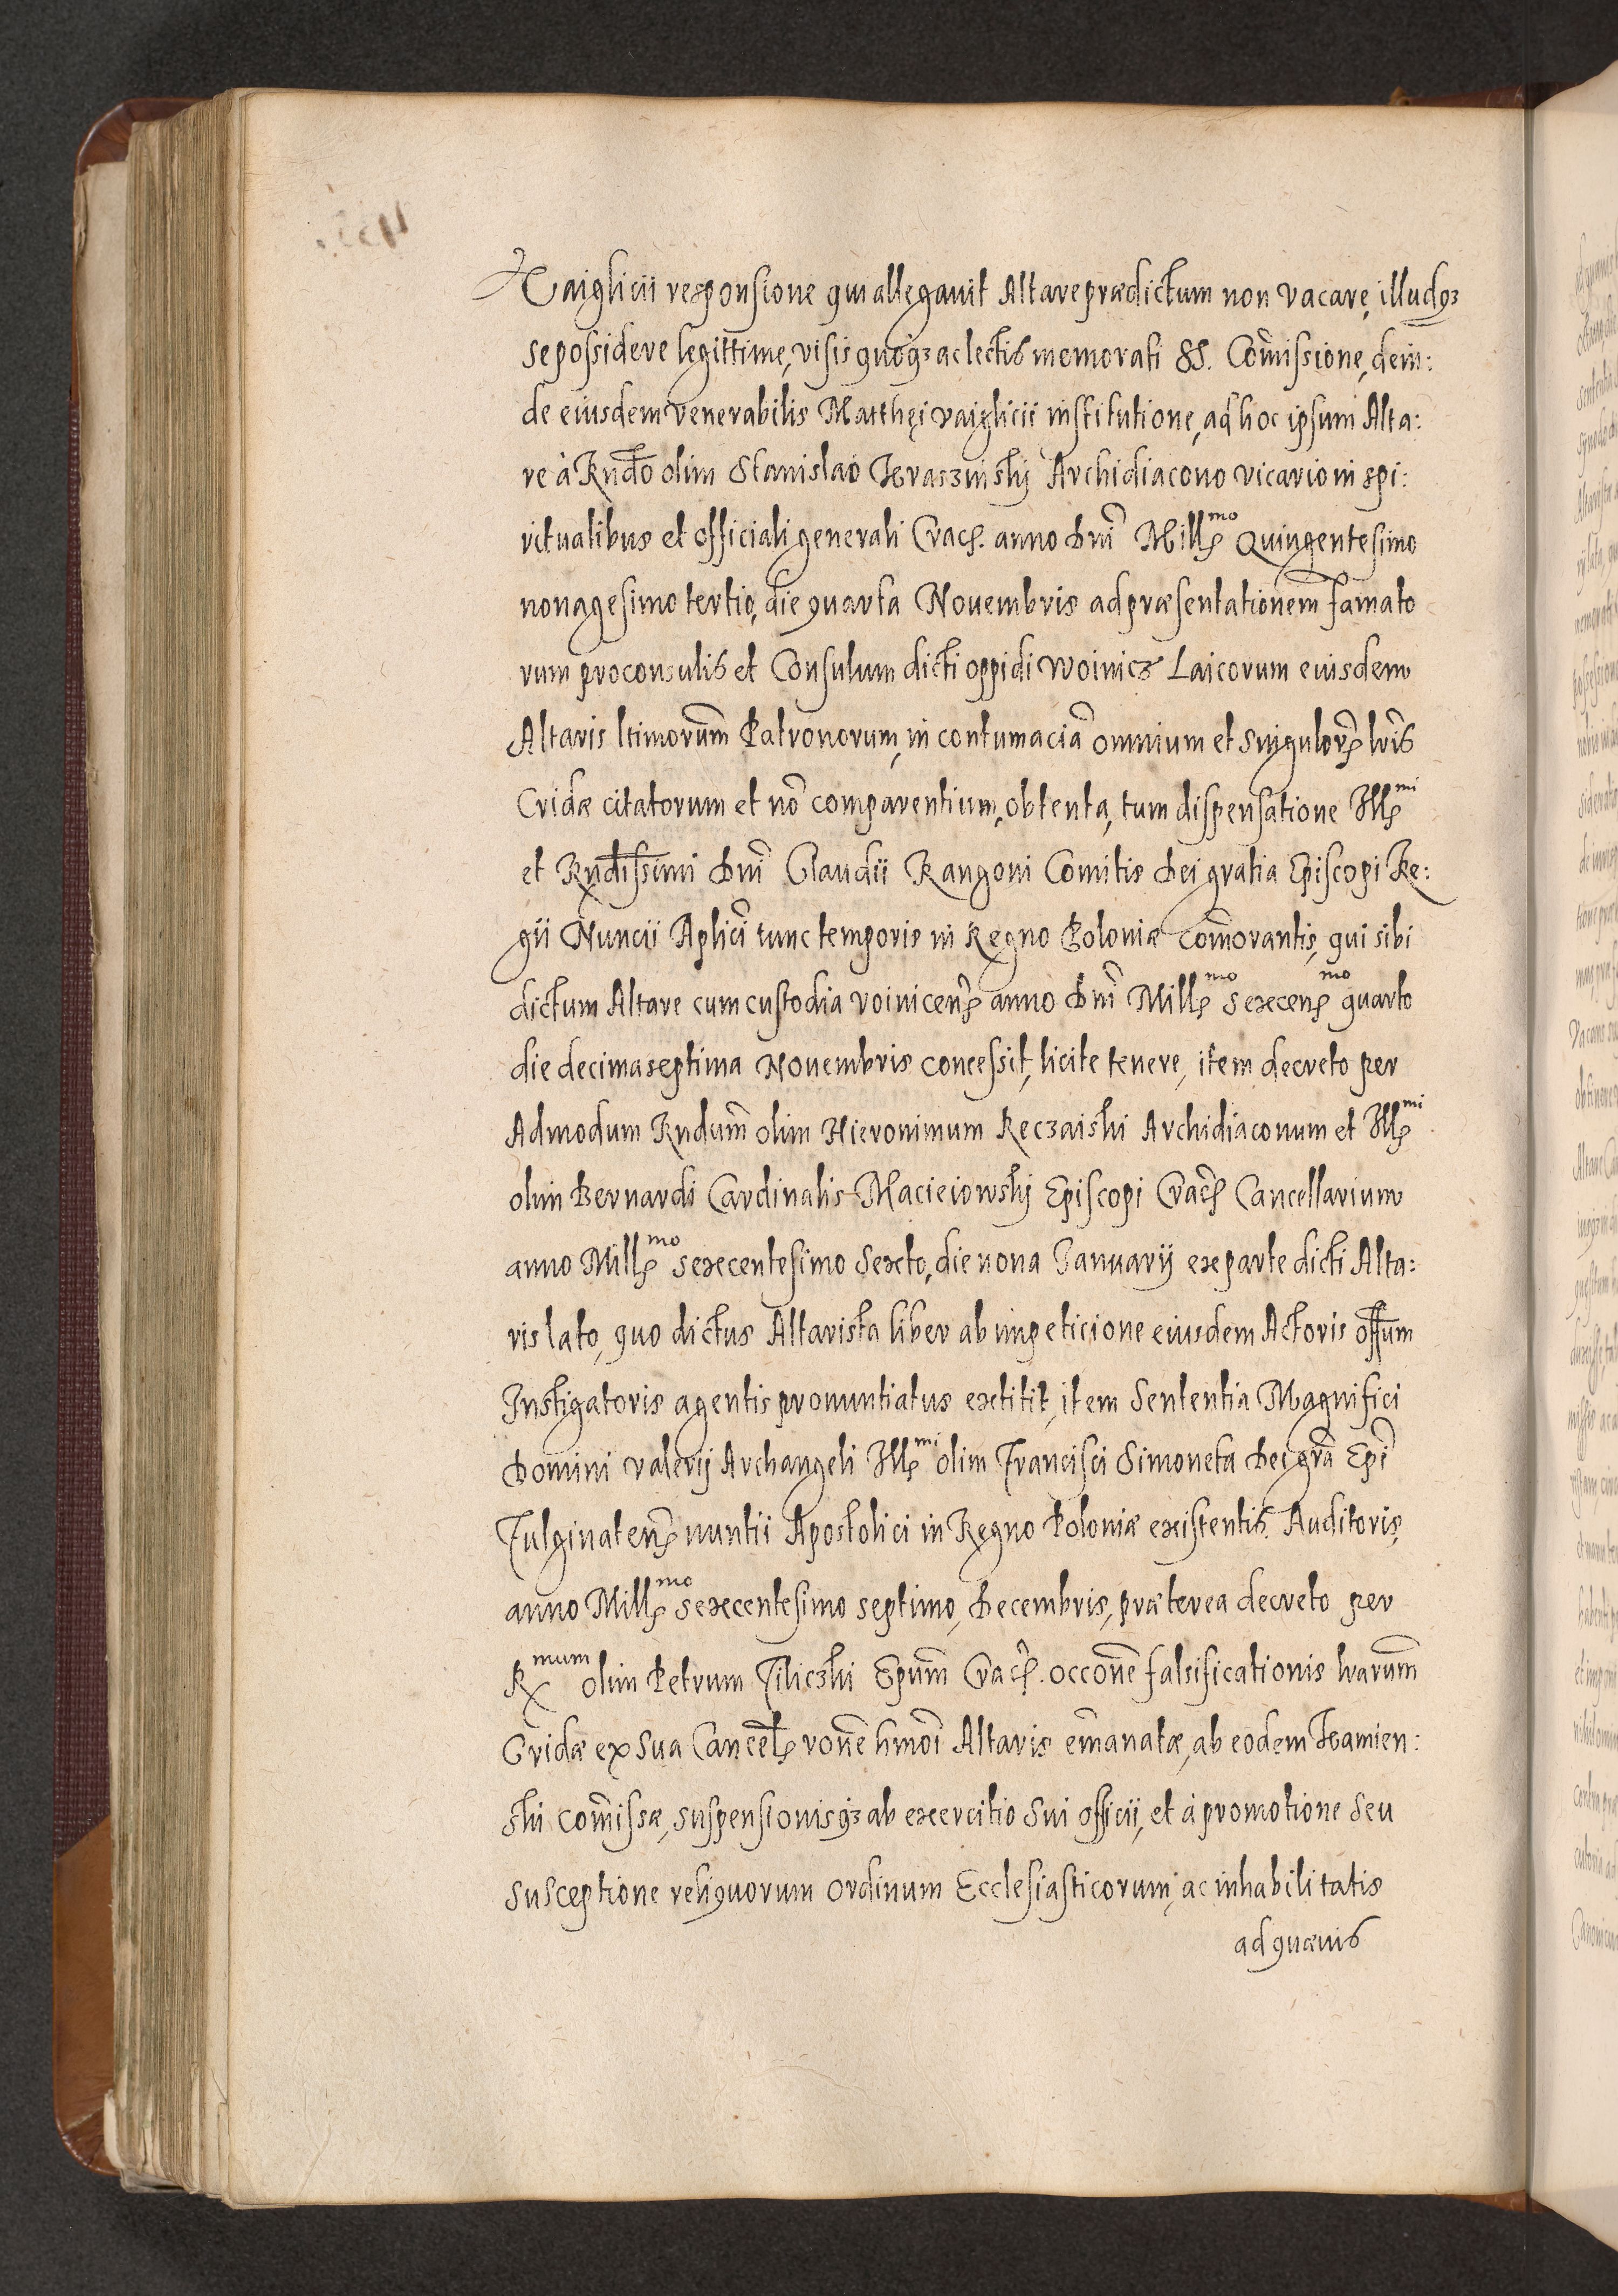 Vaiglicii responsione qui allegavit Altare prædictum non vacare, illudq3
se possidere legittime, visis quoq3 ac lectis memorati SS. Com̃issione, dein:
de eiusdem venerabilis Matthęi vaiglicii institutione, ad hoc ipsum Alta:
re à Rnd̃o olim Stanislao Kraszinskÿ Archidiacono vicario in spi:
ritualibus et officiali generali Crac̃. anno Dnĩ Mill̃mo Quingentesimo
nonagesimo tertio, die quarta Nouembris ad præsentationem famato
rum proconsulis et Consulum dicti oppidi Woinicz Laicorum eiusdem
Altaris ltimorum̃ Patronorum, in contumaciã omnium et singulor̃ lrĩs
Cridæ citatorum et nõ comparentium, obtenta, tum dispensatione Ill̃mi
et Rnd̃issimi Dnĩ Claudii Rangoni Comitis Dei gratia Episcopi Re:
gii Nuncii Aplicĩ tunc temporis in Regno Poloniæ com̃orantis, qui sibi
dictum Altare cum custodia voinicens̃ anno Dnĩ Mill̃mo Sexcen̄mo quarto
die decima septima Nouembris concessit, licite tenere, item decreto per
Admodum Rndum̃ olim Hieronimum Reczaiski Archidiaconum et Ill̃mi
olim Bernardi Cardinalis Macieiowskÿ Episcopi Crac̃ Cancellarium
anno Mill̃mo sexcentesimo Sexto, die nona Januarÿ ex parte dicti Alta:
ris lato, quo dictus Altarista liber ab impeticione eiusdem Actoris off̃um
Instigatoris agentis pronuntiatus extitit, item Sententia Magnifici
Domini valerÿ Archangeli Ill̃mi olim Francisci Simoneta Dei grã Epĩ
Fulginatens̃ nuntii Apostolici in Regno Poloniæ existentis Auditoris,
anno Mill̃mo sexcentesimo septimo, Decembris, præterea decreto per
Rmum olim Petrum Tiliczki Epum̃ Crac̃. occonẽ falsificationis lrarum̃
Cridæ ex sua Cancel̃ ronẽ hmõi Altaris em̃anatæ, ab eodem Kamien:
ski com̃issæ, suspensionisq3 ab exercitio sui officii, et à promotione seu
susceptione reliquorum ordinum Ecclesiasticorum, ac inhabilitatis
ad quævis